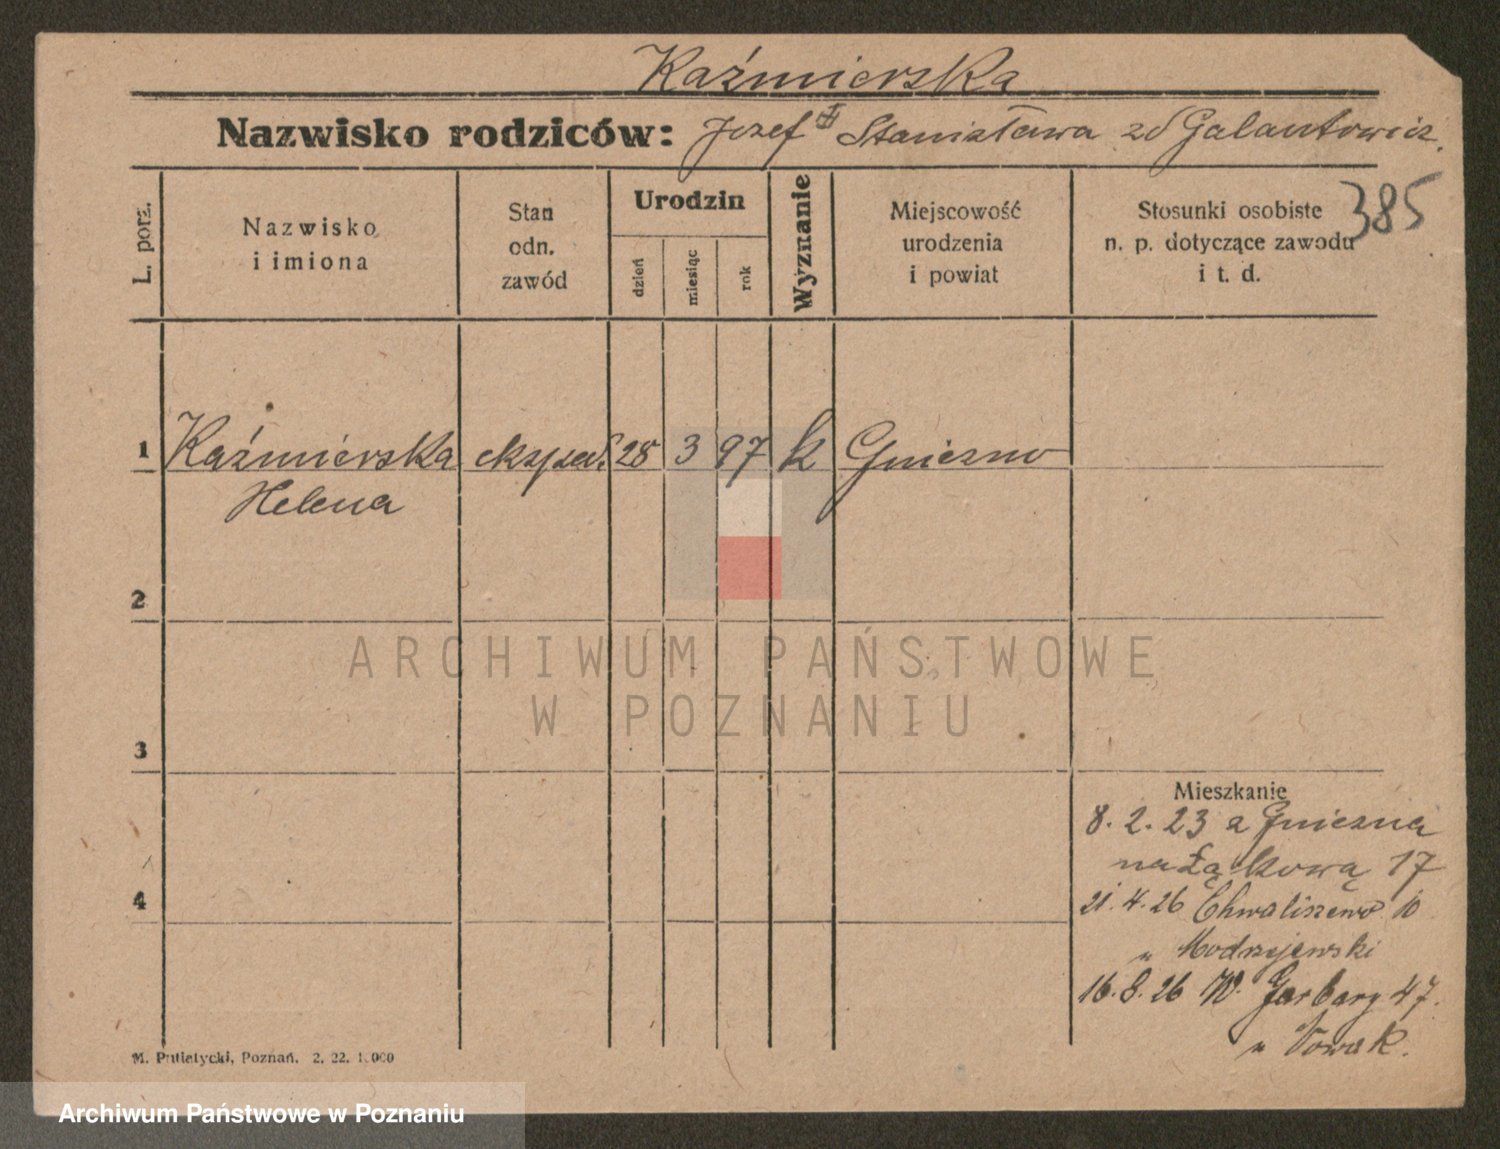 Kaźmierska
Nazwisko rodziców: Jozef Stanisława zd Galantowicz.
385
L. porz.
Nazwisko i imiona
Stan odn. zawód
Urodzin
dzień
miesiąc
rok
Wyznanie
Miejscowość urodzenia i powiat
Stosunki osobiste n. p. dotyczące zawodu i t. d.
1 Kaźmierska eksped. 28 3 97 k Gniezno
Helena
2
ARCHIWUM PAŃSTWOWE
W POZNANIU
3
Mieszkanie
8. 2. 23 z Gniezna
na Łąkową 17
4
21. 4. 26 Chwaliszewo 10
" Modrzejewski
16. 8. 26 W. Garbary 47.
" Nowak.
M. Putiatycki, Poznań. 2. 22. 1.000
Archiwum Państwowe w Poznaniu